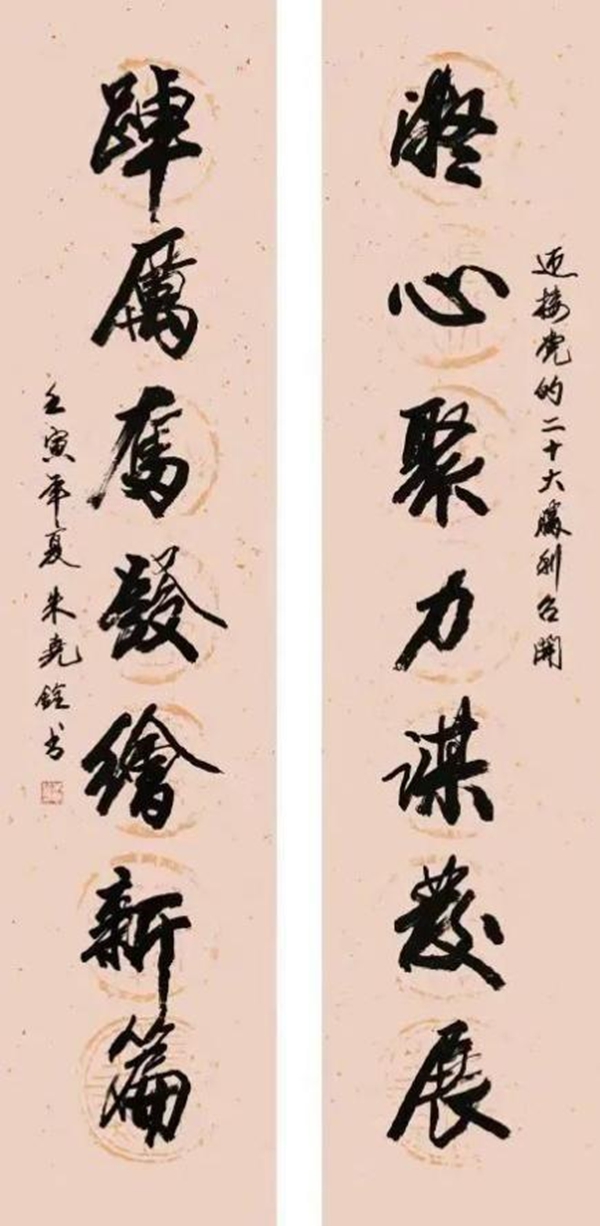 迎接党的二十大勝利召開
凝心聚力謀發展
踔厲奮發繪新篇
壬寅年夏朱堯銓書